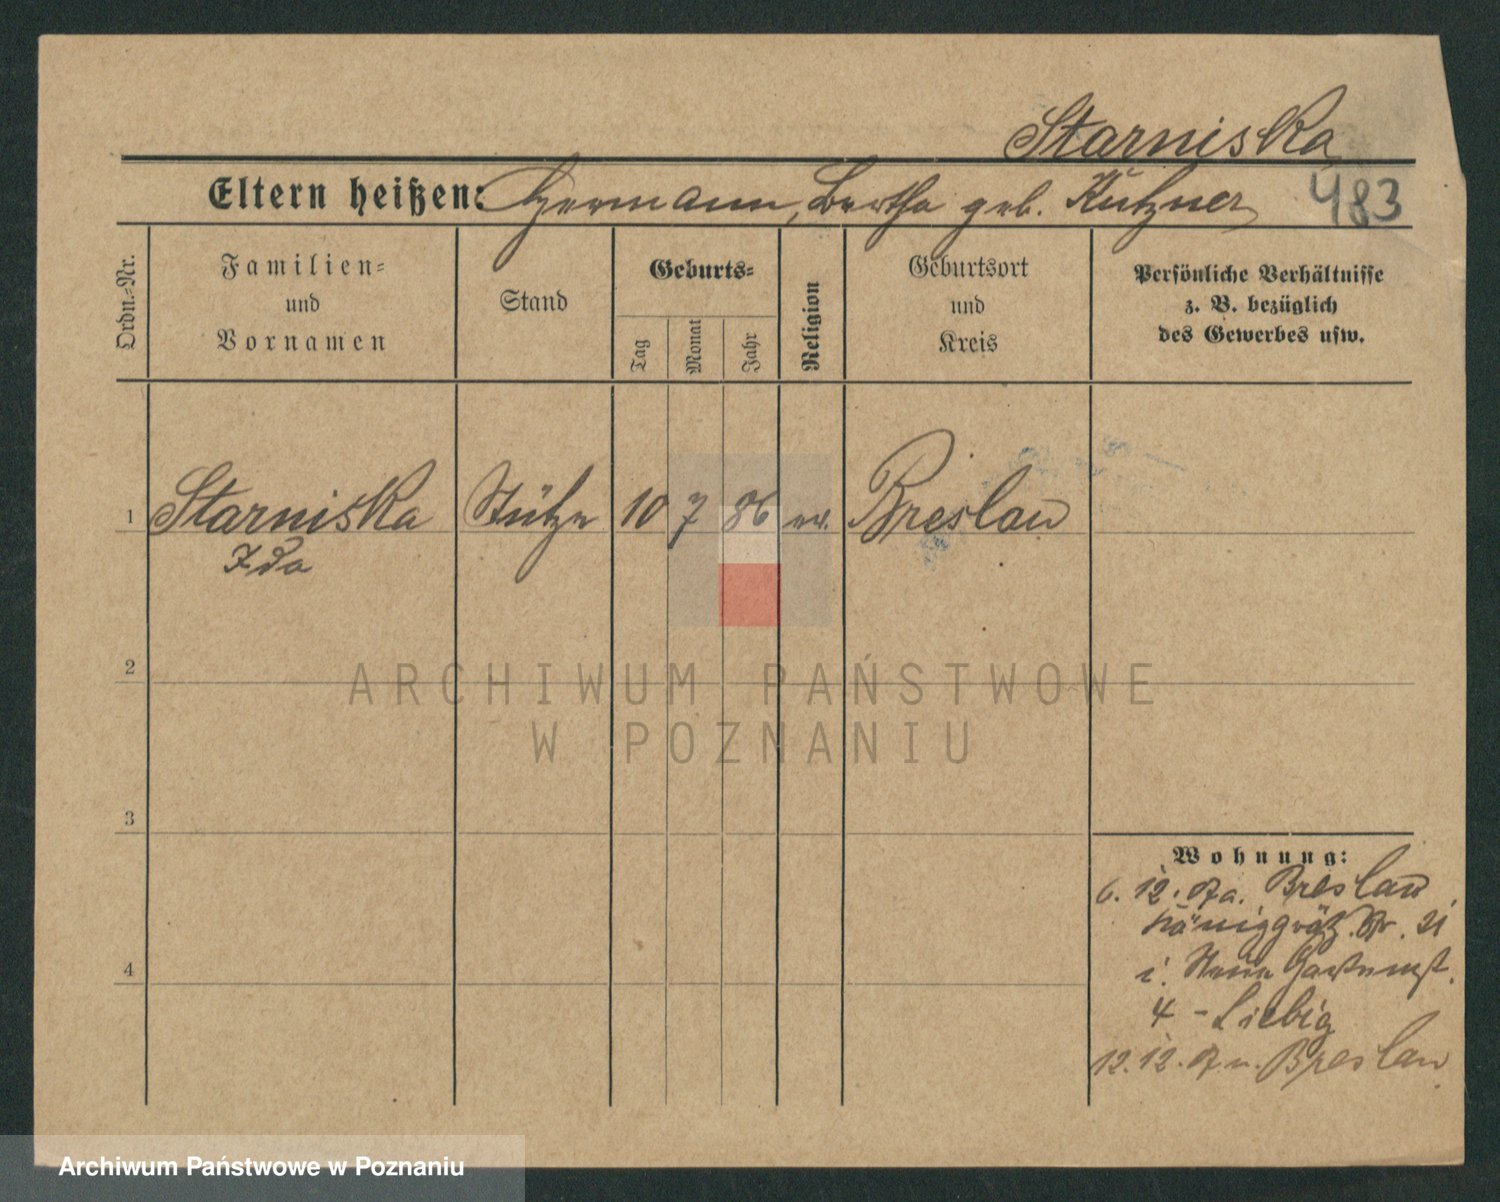 Starniska
Eltern heißen: Hermann, Bertha geb. Kutzner 483
Ordn.-Nr.
Familien-
und
Vornamen
Stand
Geburts-
Tag
Monat
Jahr
Religion
Geburtsort
und
Kreis
Persönliche Verhältnisse
z. B. bezüglich
des Gewerbes usw.
1 Starniska Stütze 10 7 86 ev. Breslau
Ida
2
ARCHIWUM PAŃSTWOWE
W POZNANIU
3
4
Wohnung:
6. 12. 07 a. Breslau
Königgrätz. Str. 21
i. Neue Gartenst.
4 - Liebig
12. 12. 07 n. Breslau
Archiwum Państwowe w Poznaniu